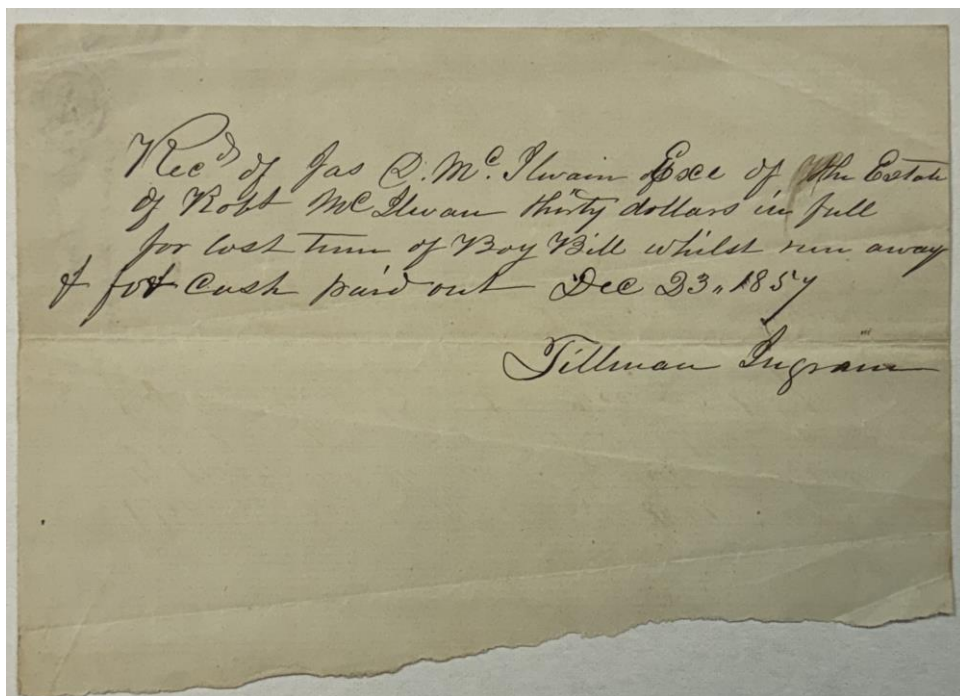 Recd of Jas D. Mc. Ilwain Exe of the Estate
of Robt McIlwan thirty dollars in full
for lost time of Boy Bill whilst run away
& for Cash paid out Dec 23 " 1857
Tillman Ingram